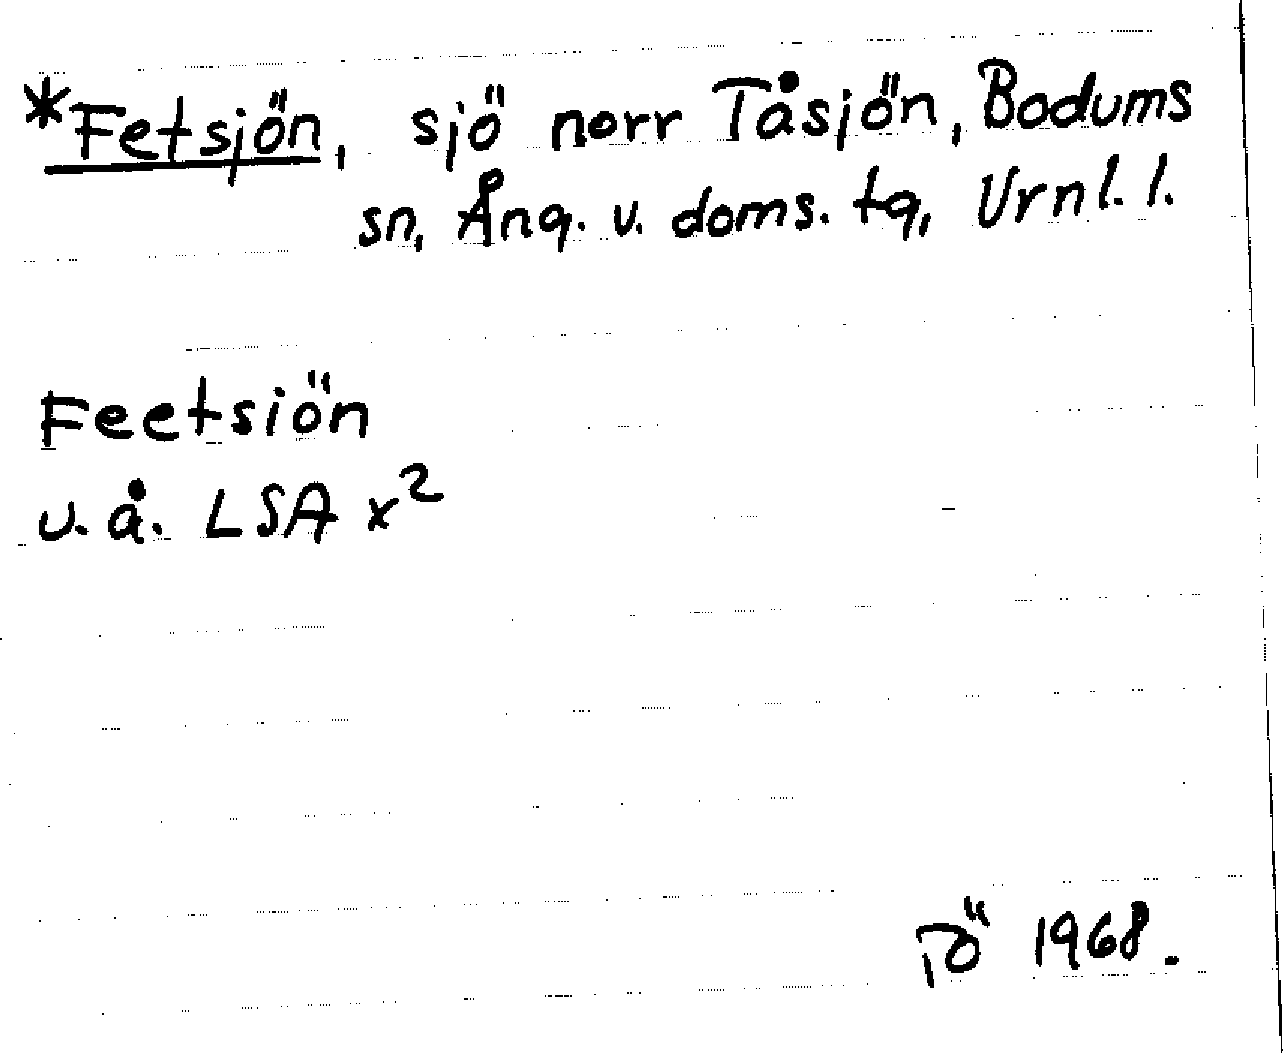 *Fetsjön, sjö norr Tåsjön, Bodums
sn, Ång. v. doms. tg, Urnl. l.
Feetsiön
u.å. LSA x²
PÖ 1968.